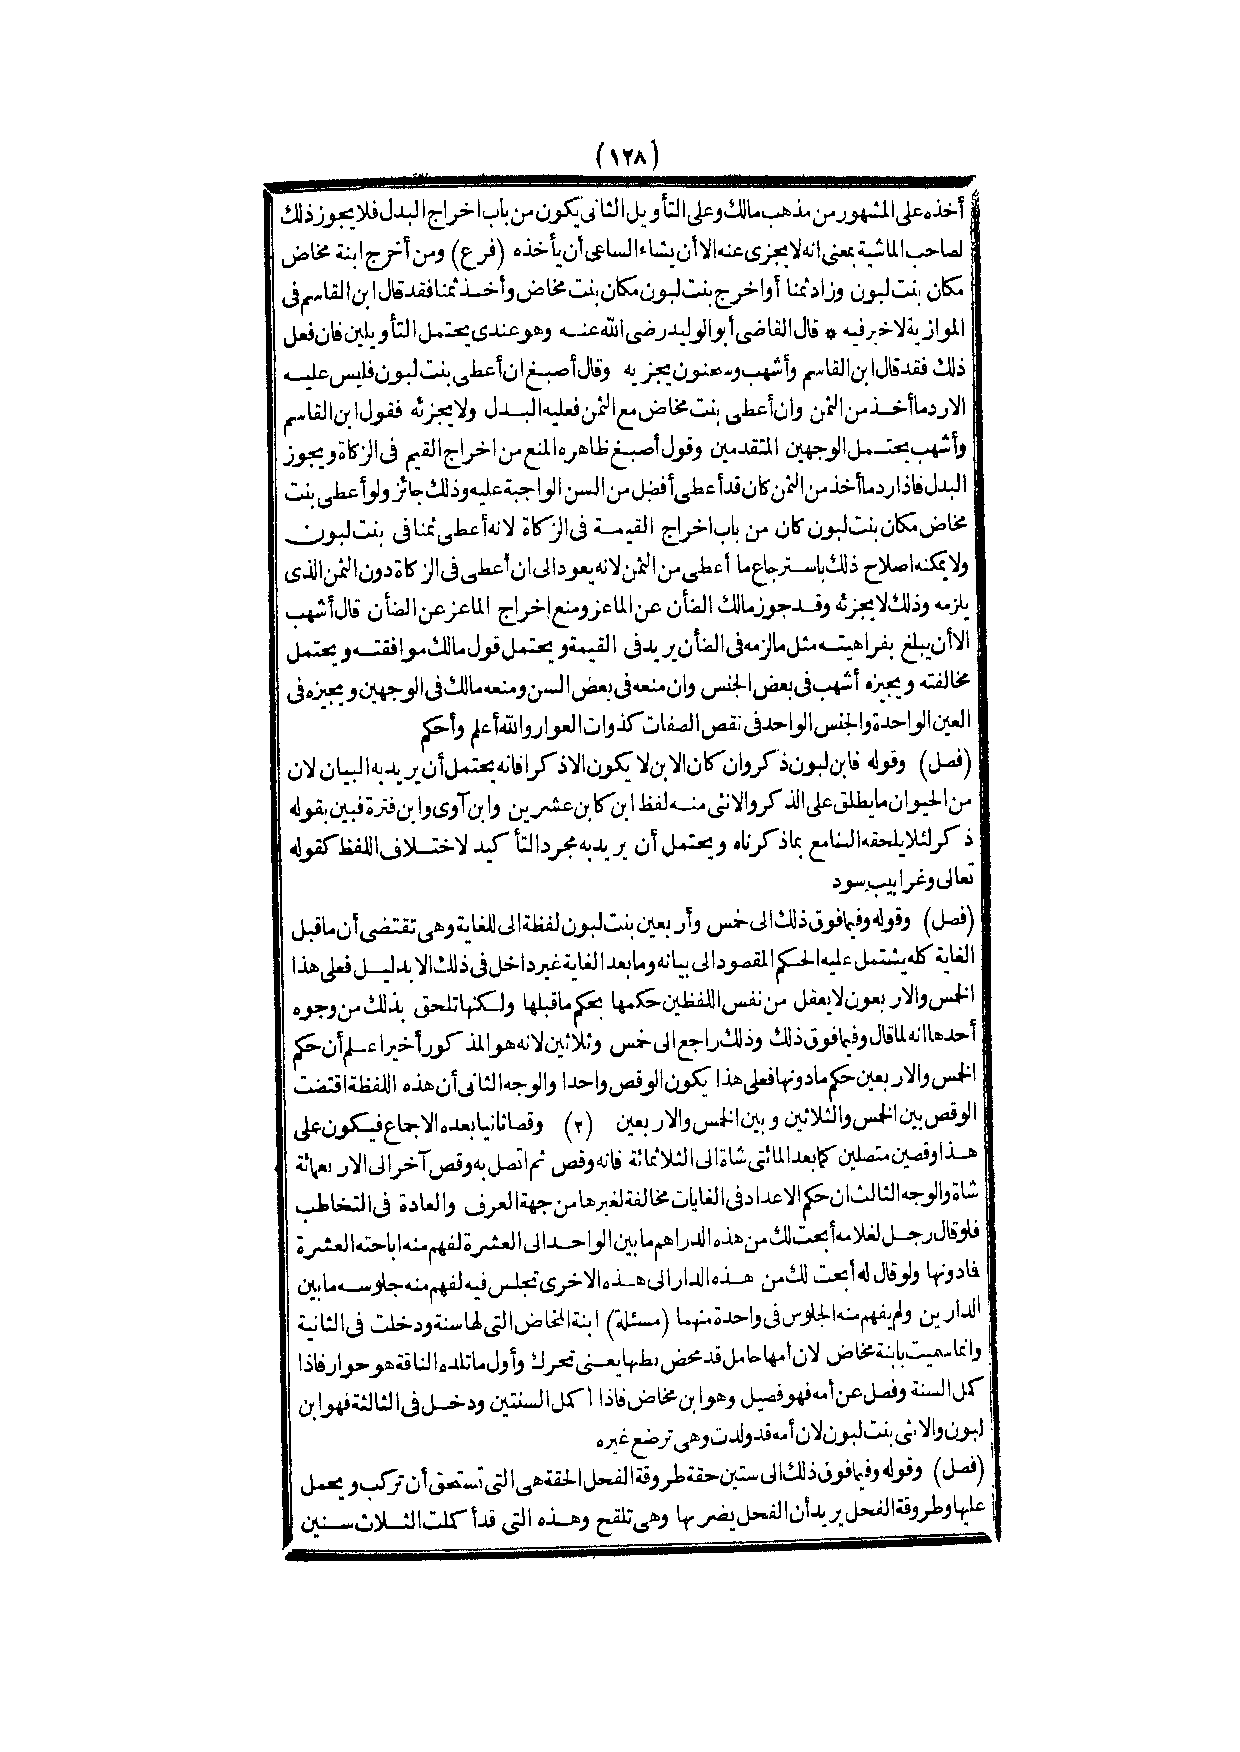 (١٢٨)
أخذه على المشهور من مذهب مالك وعلى التأويل الثاني يكون من باب اخراج البدل فلا يجوز ذلك
لصاحب الماشية بمعنى انه لا يجزى عنه الا أن يشاء الساعى أن يأخذه (فرع) ومن أخرج ابنة مخاض
مكان بنت لبون وزاد ثمنا أو اخرج بنت لبون مكان بنت مخاض وأخذ ثمنا فقد قال ابن القاسم في
الموازية لا خير فيه * قال القاضى أبو الوليد رضى الله عنه وهو عندى يحتمل التأويلين فان فعل
ذلك فقد قال ابن القاسم وأشهب وسحنون يجزيه وقال أصبغ ان أعطى بنت لبون فليس عليه
الا رد ما أخذ من الثمن وان أعطى بنت مخاض مع الثمن فعليه البدل ولا يجزئه فقول ابن القاسم
وأشهب يحتمل الوجهين المتقدمين وقول أصبغ ظاهره المنع من اخراج القيم في الزكاة ويجوز
البدل فاذا رد ما أخذ من الثمن كان قد أعطى أفضل من السن الواجبة عليه وذلك جائز ولو أعطى بنت
مخاض مكان بنت لبون كان من باب اخراج القيمة فى الزكاة لانه أعطى ثمنا فى بنت لبون
ولا يمكنه اصلاح ذلك باسترجاع ما أعطى من الثمن لانه يعود الى ان أعطى فى الزكاة دون الثمن الذى
يلزمه وذلك لا يجزئه وقد جوز مالك الضأن عن الماعز ومنع إخراج الماعز عن الضأن قال أشهب
الا أن يبلغ بفراهيته مثل ما لزمه فى الضأن يريد فى القيمة ويحتمل قول مالك موافقته ويحتمل
مخالفته ويجيزه أشهب فى بعض الجنس وان منعه فى بعض السن ومنعه مالك فى الوجهين ويجيزه فى
العين الواحدة والجنس الواحد فى نقص الصفات كذوات العوار والله أعلم وأحكم
(فصل) وقوله فابن لبون ذكر وان كان الابن لا يكون الا ذكرا فانه يحتمل أن يريد به البيان لان
من الحيوان ما يطلق على الذكر والانثى منه لفظ ابن كابن عشرين وابن آوى وابن قترة فبين بقوله
ذكر لئلا يلحقه السامع بما ذكرناه ويحتمل أن يريد به مجرد التأكيد لاختلاف اللفظ كقوله
تعالى وغرابيب سود
(فصل) وقوله وفيما فوق ذلك الى خمس وأربعين بنت لبون لفظة الى للغاية وهى تقتضى أن ما قبل
الغاية كله يشتمل عليه الحكم المقصود الى بيانه وما بعد الغاية غير داخل فى ذلك الا بدليل فعلى هذا
الخمس والاربعون لا يعقل من نفس اللفظين حكمها بحكم ما قبلها ولكنها تلحق بذلك من وجوه
أحدها انه لما قال وفيما فوق ذلك وذلك راجع الى خمس وثلاثين لانه هو المذكور أخيرا علم أن حكم
الخمس والاربعين حكم ما دونها فعلى هذا يكون الوقص واحدا والوجه الثانى أن هذه اللفظة اقتضت
الوقص بين الخمس والثلاثين وبين الخمس والاربعين (٢) وقصا ثانيا بعده الاجماع فيكون على
هذا وقصين متصلين كما بعد المائتى شاة الى الثلاثمائة فانه وقص ثم اتصل به وقص آخر الى الاربعمائة
شاة والوجه الثالث ان حكم الاعداد فى الغايات مخالفة لغيرها من جهة العرف والعادة فى التخاطب
فلو قال رجل لغلامه أبحت لك من هذه الدراهم ما بين الواحد الى العشرة لفهم منه اباحته العشرة
فادونها ولو قال له أبحت لك من هذه الدار الى هذه الاخرى تجلس فيه لفهم منه جلوسه ما بين
الدارين ولم يفهم منه الجلوس فى واحدة منهما (مسئلة) ابنة المخاض التى لها سنة ودخلت فى الثانية
وانما سميت بابنة مخاض لان أمها حامل قد مخض بطنها يعنى تحرك وأول ما تلده الناقة هو حوار فاذا
كمل السنة وفصل عن أمه فهو فصيل وهو ابن مخاض فاذا أكمل السنتين ودخل فى الثالثة فهو ابن
لبون والانثى بنت لبون لان أمه قد ولدت وهى ترضع غيره
(فصل) وقوله وفيما فوق ذلك الى ستين حقة طروقة الفحل الحقة هى التى تستحق أن تركب ويحمل
عليها وطروقة الفحل يريد أن الفحل يضربها وهى تلقح وهذه التى قد أكملت الثلاث سنين